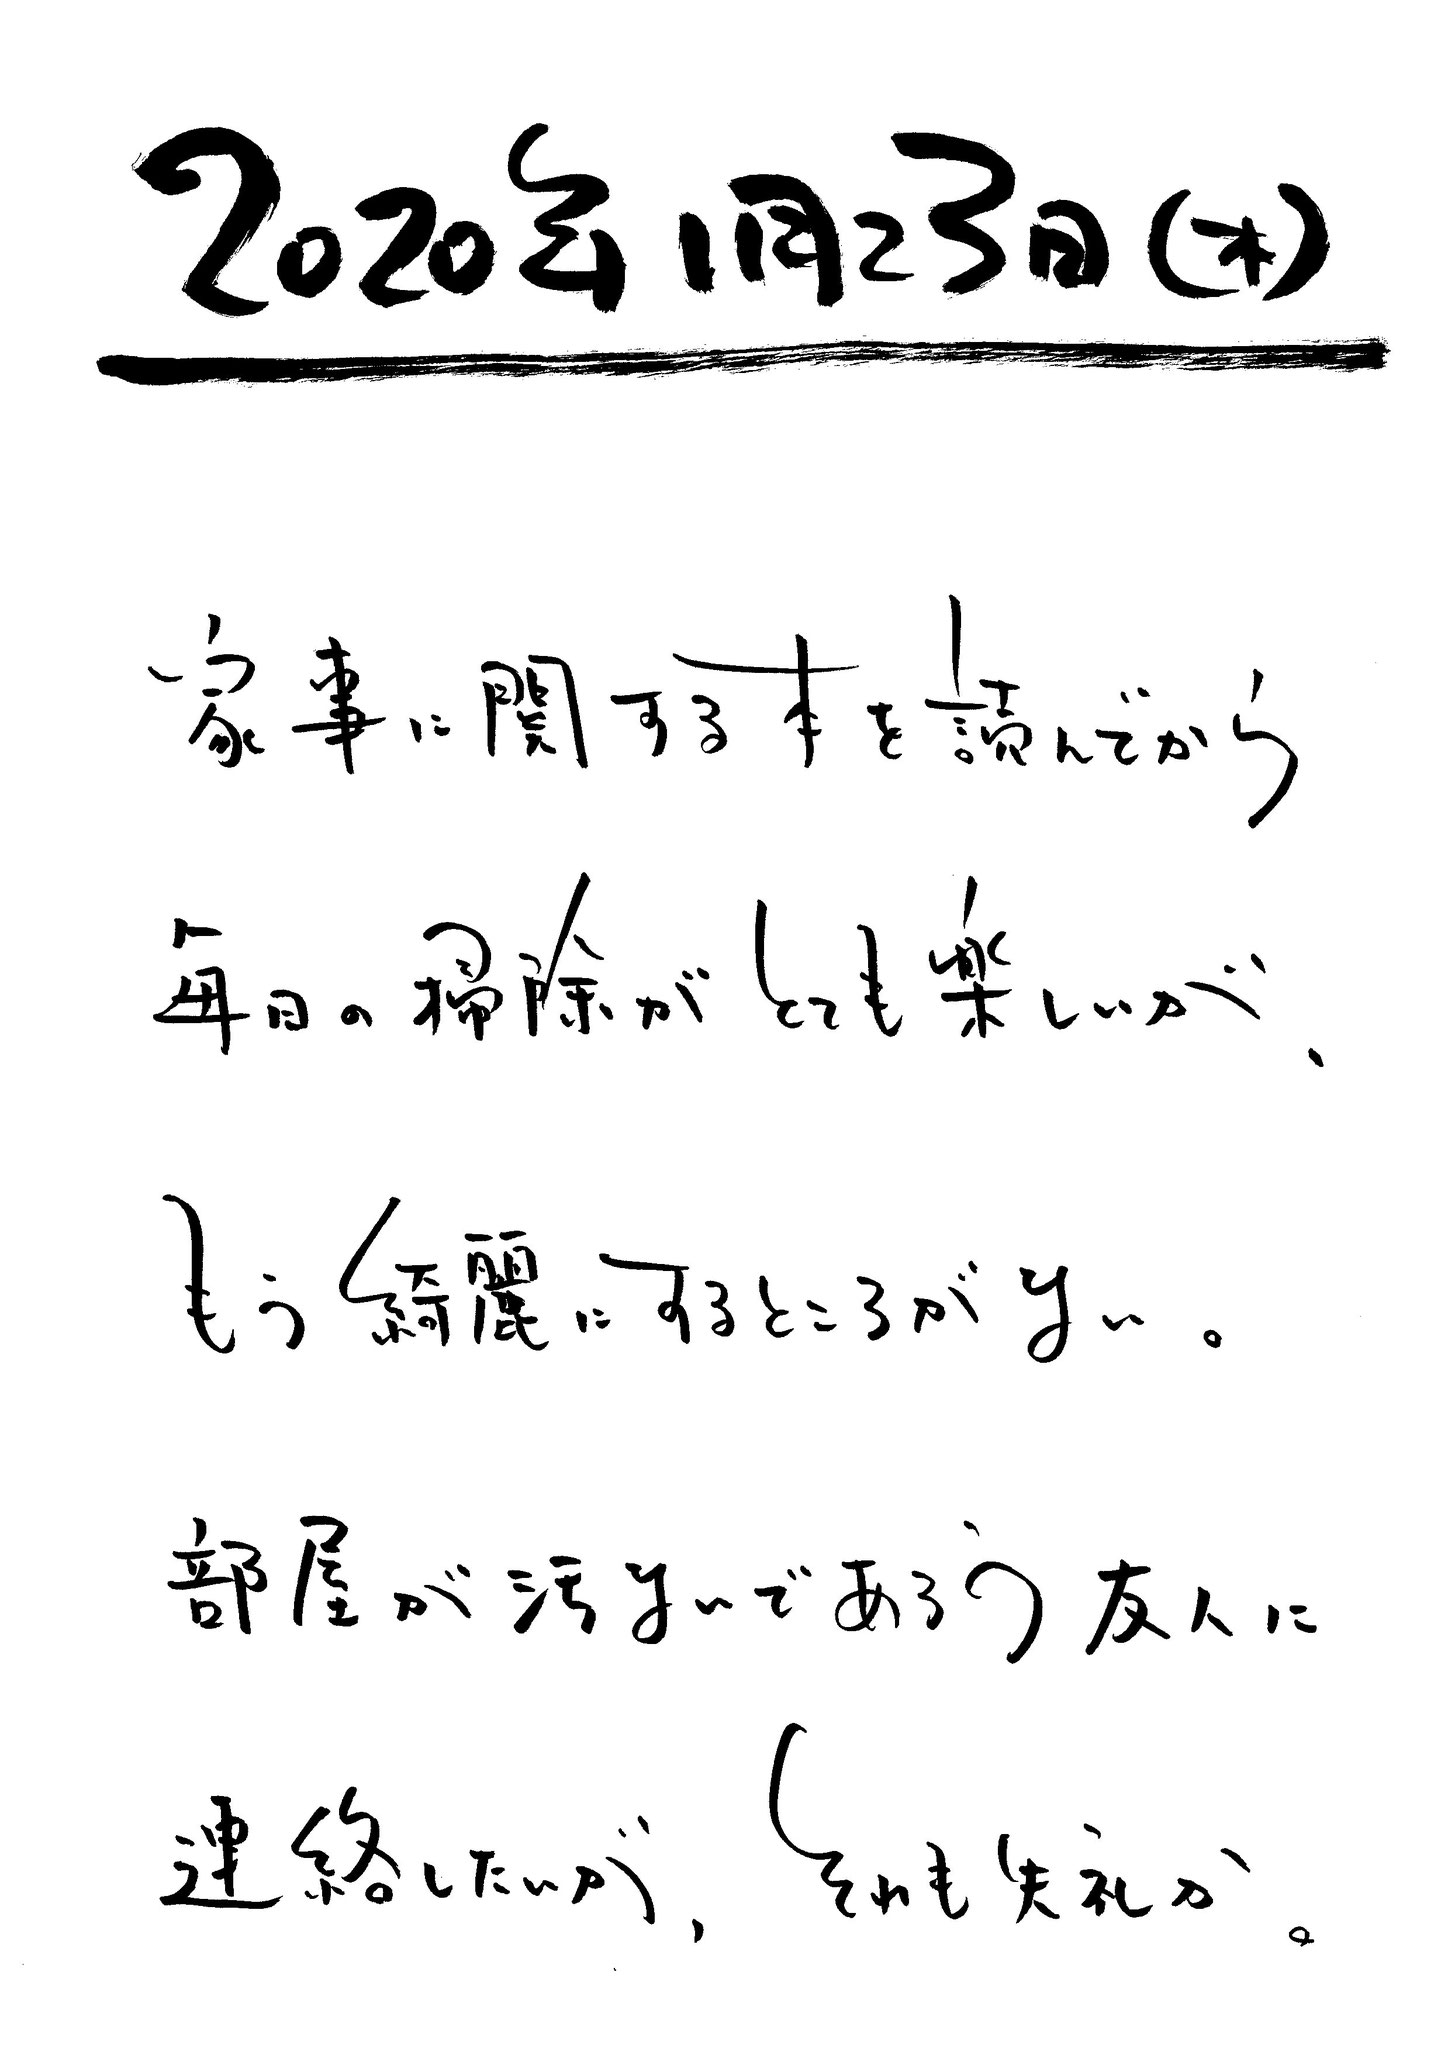 2020年1月23日(木)
家事に関する本を読んでから
毎日の掃除がとても楽しいが、
もう綺麗にするところがない。
部屋が汚ないであろう友人に
連絡したいが、それも失礼か。